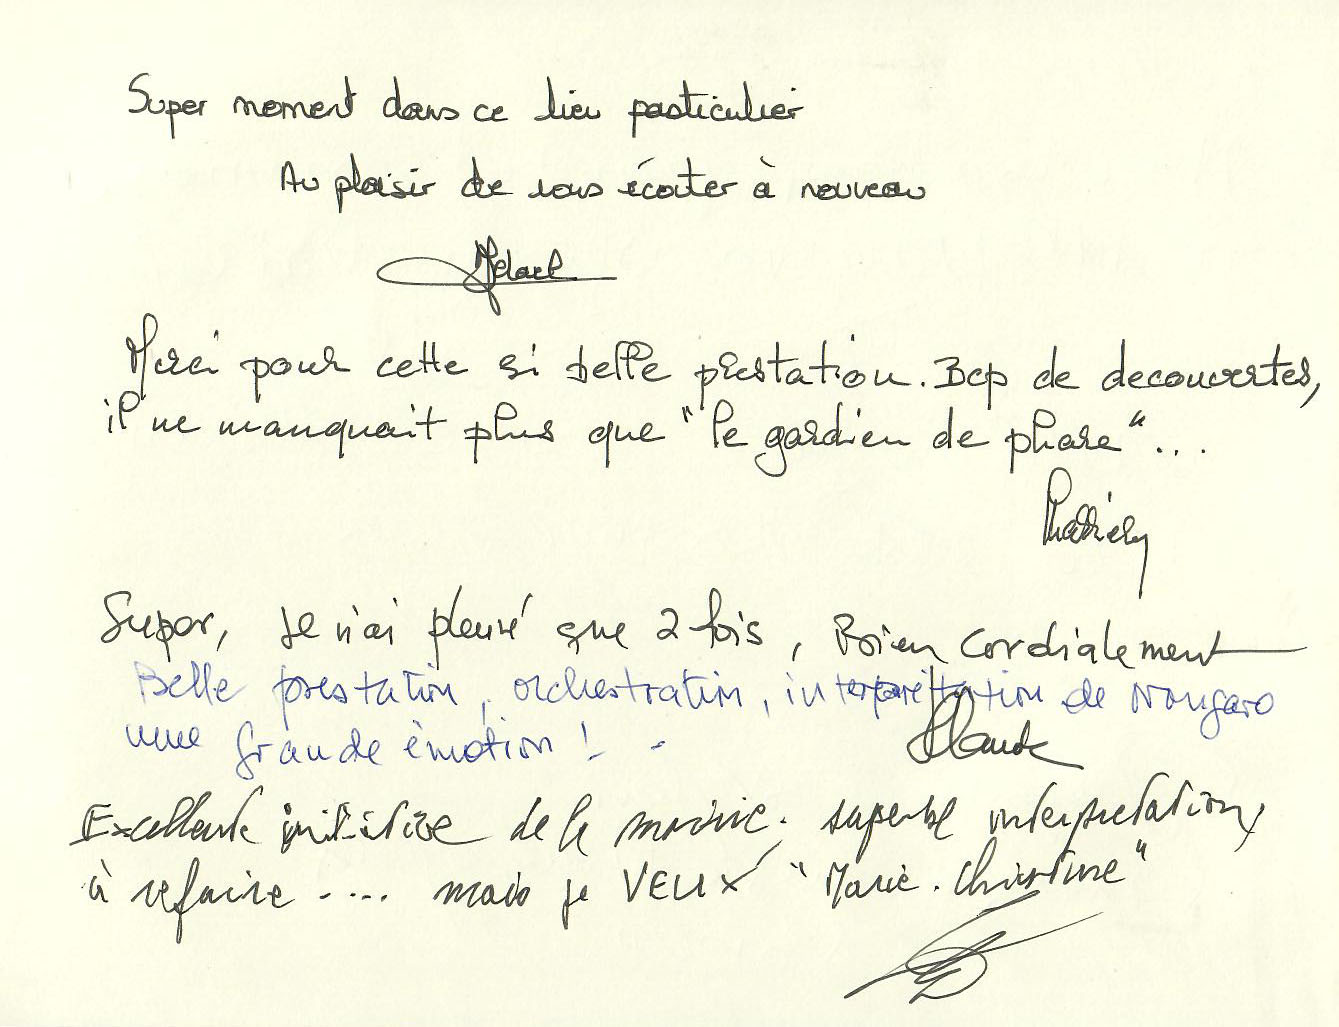 Super moment dans ce lieu particulier
Au plaisir de vous écouter à nouveau
Merci pour cette si belle prestation. Bcp de decouvertes,
il ne manquait plus que "le gardien de phare"...
Super, je n'ai pleuré que 2 fois, Bien cordialement
Belle prestation, orchestration, interprétation de Nougaro
Claude
une grande émotion !
Excellente initiative de la mairie. superbe interpretation,
à refaire .... mais je VEUX "Marie.Christine"